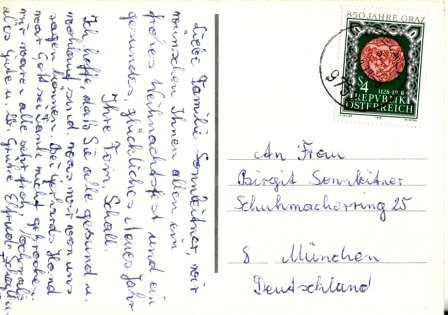 Liebe Familie Sonnleitner, wir
wünschen Ihnen allen ein
frohes Weihnachtsfest und ein
gesundes, glückliches Neues Jahr
Ihre Fam. Schall.
Ich hoffe, daß Sie alle gesund u.
wohlauf sind, was wir von uns
sagen können. Bei Gerhards Hand
war Gott sei Dank nicht gebrochen.
wir waren alle sehr froh! Nochmals
alles Gute u. lb. Grüße Elfriede Schall u.
850 JAHRE GRAZ
1128-1978
S 4
REPUBLIK
ÖSTERREICH
An Frau
Birgit Sonnleitner
Schuhmacherring 25
8 München
Deutschland